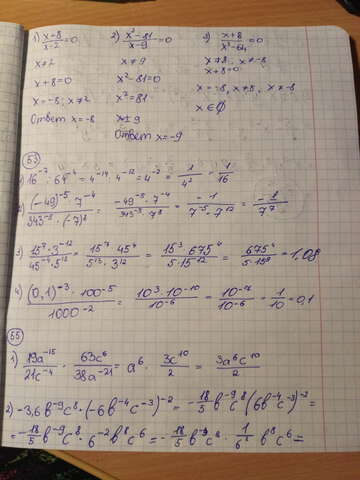 1) (x+8)/(x-2) = 0   2) (x²-81)/(x-9) = 0   3) (x+8)/(x²-64) = 0
x≠2   x≠9   x≠8, x≠-8
x+8=0   x²-81=0   x+8=0
x=-8, x≠2   x²=81   x=-8, x≠8, x≠-8
Ответ x=-8   x=±9   x∈∅
Ответ x=-9
53
1) 16⁻⁷ · 64⁴ = 4⁻¹⁴ · 4⁻¹² = 4⁻² = 1/4² = 1/16
2) ((-49)⁻⁵ · 7⁻⁴)/(343⁻⁵ · (-7)⁸) = (-49⁻⁵ · 7⁻⁴)/(343⁻⁵ · 7⁸) = -1/(7⁻⁵ · 7¹²) = -1/7⁷
3) (15⁷ · 3⁻¹²)/(45⁻⁴ · 5¹³) = (15⁷ · 45⁴)/(5¹³ · 3¹²) = (15³ · 675⁴)/(5 · 15¹²) = 675⁴/(5 · 15⁹) = 1,08
4) ((0,1)⁻³ · 100⁻⁵)/(1000⁻²) = (10³ · 10⁻¹⁰)/(10⁻⁶) = 10⁻⁷/10⁻⁶ = 1/10 = 0,1
55
1) 19a⁻¹⁵/21c⁻⁴ · 63c⁶/38a⁻²¹ = a⁶ · 3c¹⁰/2 = 3a⁶c¹⁰/2
2) -3,6b⁻⁹c⁸ · (-6b⁻⁴c⁻³)⁻² = -18/5 b⁻⁹c⁸(6b⁻⁴c⁻³)⁻² =
= -18/5 b⁻⁹c⁸ · 6⁻²b⁸c⁶ = -18/5 b⁻⁹c⁸ · 1/6² b⁸c⁶ =